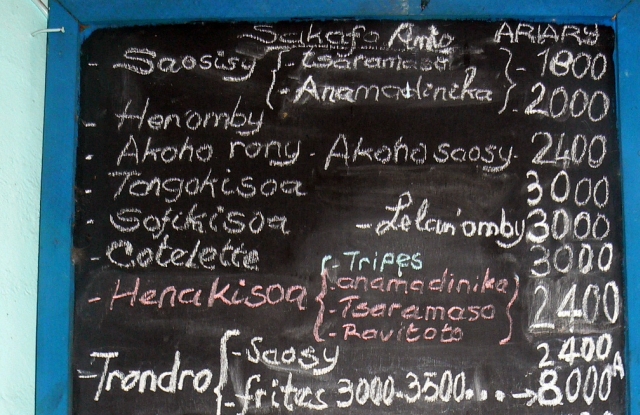 Sakafo Anio ARIARY
- Saosisy { - Tsaramaso } - 1800
- Anamadinika 2000
- Hen'omby
- Akoho rony - Akoho saosy - 2400
- Tongokisoa 3000
- Sofikisoa - Lelan'omby 3000
- Cotelette 3000
- Tripes
- Henakisoa { anamadinika } 2400
- Tsaramaso
- Ravitoto
- Trondro { - Saosy 2400
- frites 3000-3500...→ 8000A